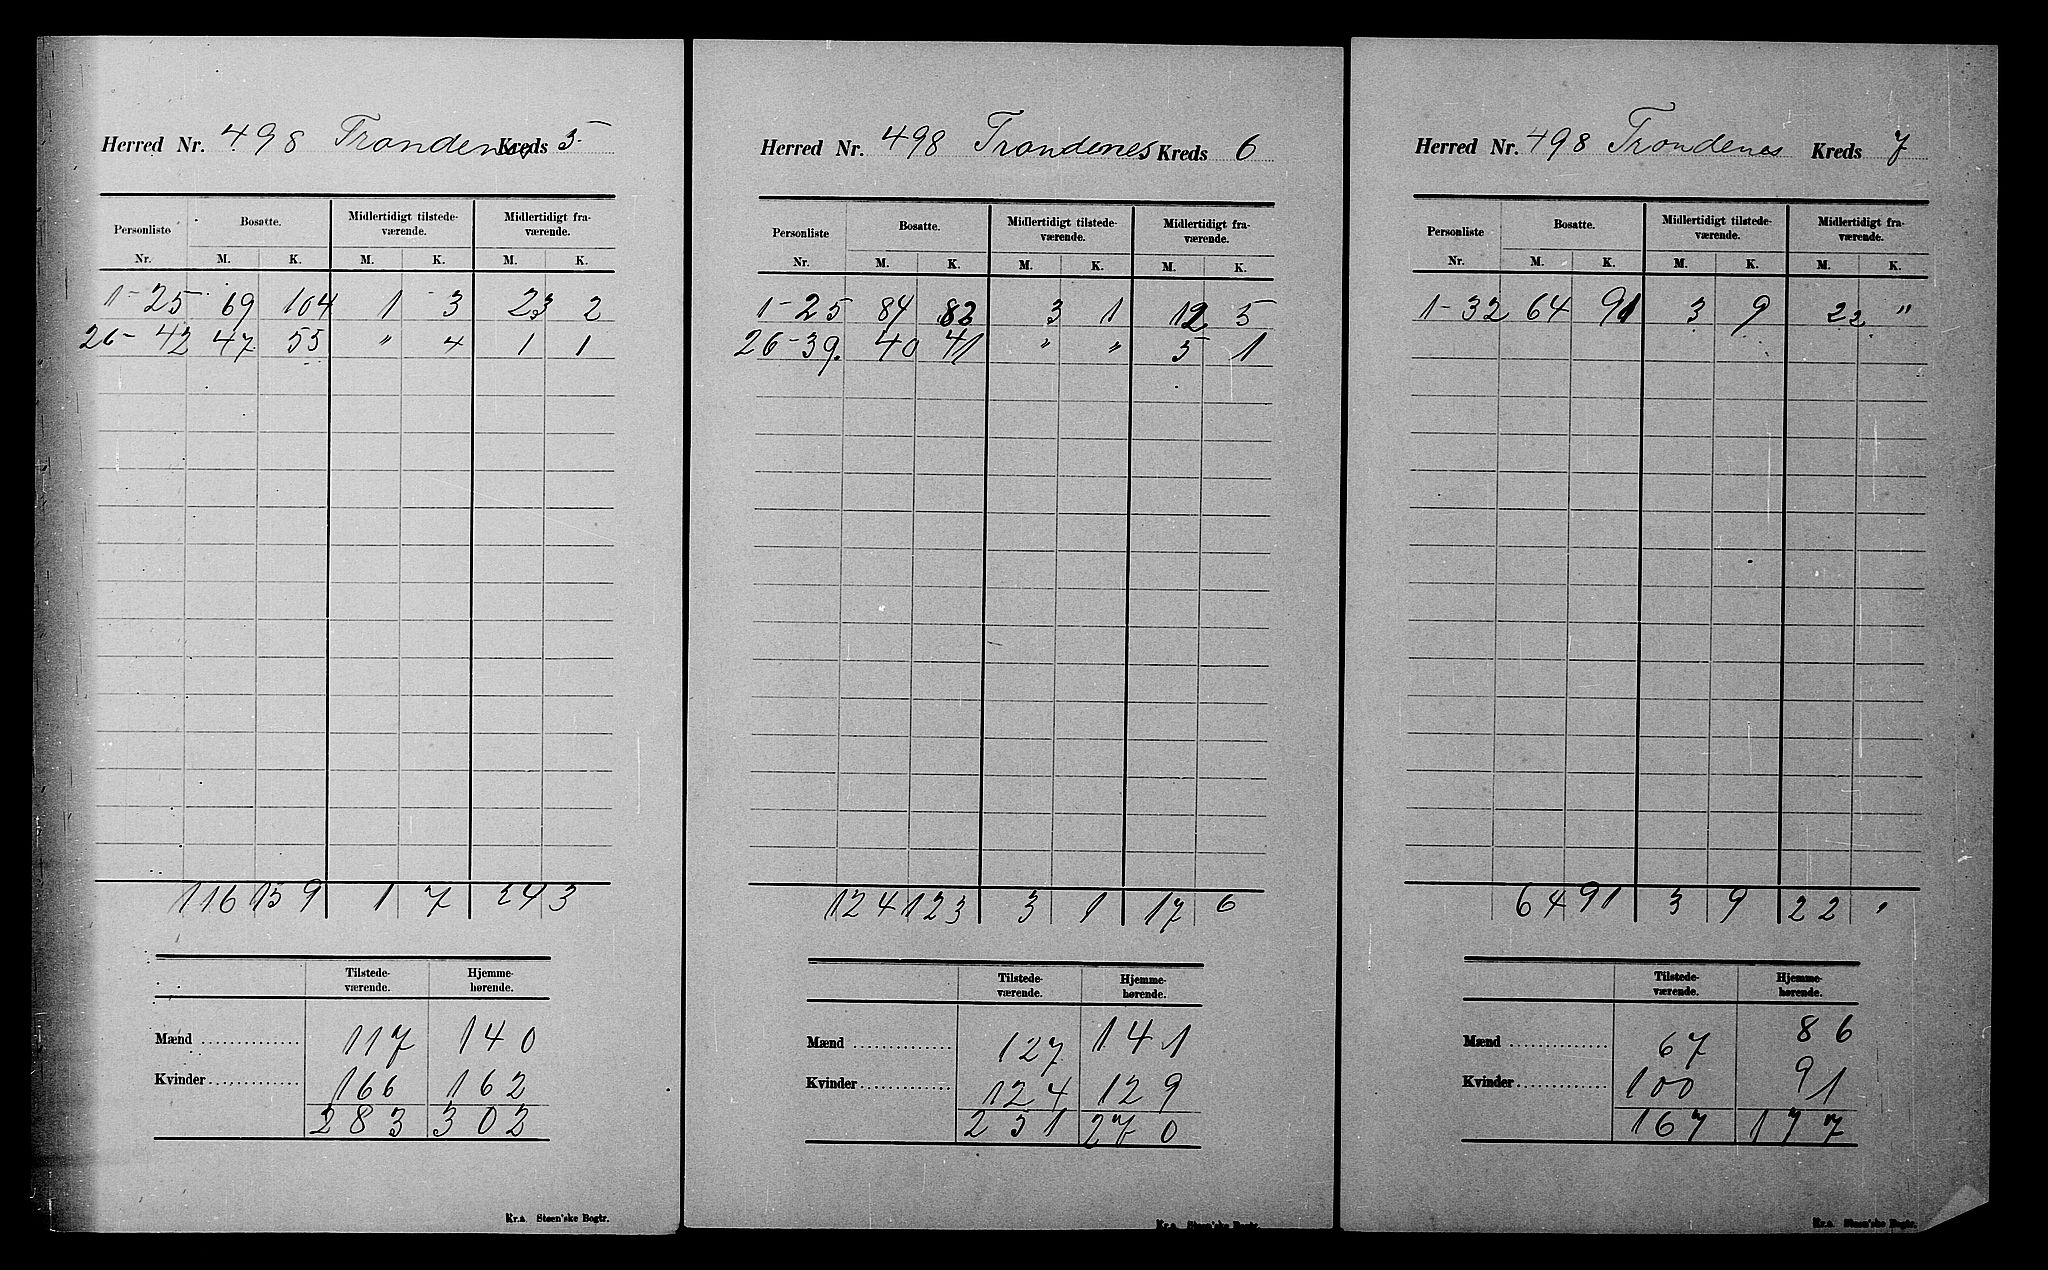 Herred Nr. 498 Trondenes Kreds 5
Personliste Bosatte. Midlertidigt tilstede-værende. Midlertidigt fra-værende.
Nr. M. K. M. K. M. K.
1-25 69 104 1 3 23 2
26-42 47 55 " 4 1 1
116 159 1 7 24 3
Tilstede-værende. Hjemme-hørende.
Mænd 117 140
Kvinder 166 162
283 302
Kr.a Steen'ske Bogtr.
Herred Nr. 498 Trondenes Kreds 6
Personliste Bosatte. Midlertidigt tilstede-værende. Midlertidigt fra-værende.
Nr. M. K. M. K. M. K.
1-25 84 82 3 1 12 5
26-39. 40 41 " " 5 1
124 123 3 1 17 6
Tilstede-værende. Hjemme-hørende.
Mænd 127 141
Kvinder 124 129
251 270
Kr.a Steen'ske Bogtr.
Herred Nr. 498 Trondenes Kreds 7
Personliste Bosatte. Midlertidigt tilstede-værende. Midlertidigt fra-værende.
Nr. M. K. M. K. M. K.
1-32 64 91 3 9 22 "
64 91 3 9 22 "
Tilstede-værende. Hjemme-hørende.
Mænd 67 86
Kvinder 100 91
167 177
Kr.a Steen'ske Bogtr.